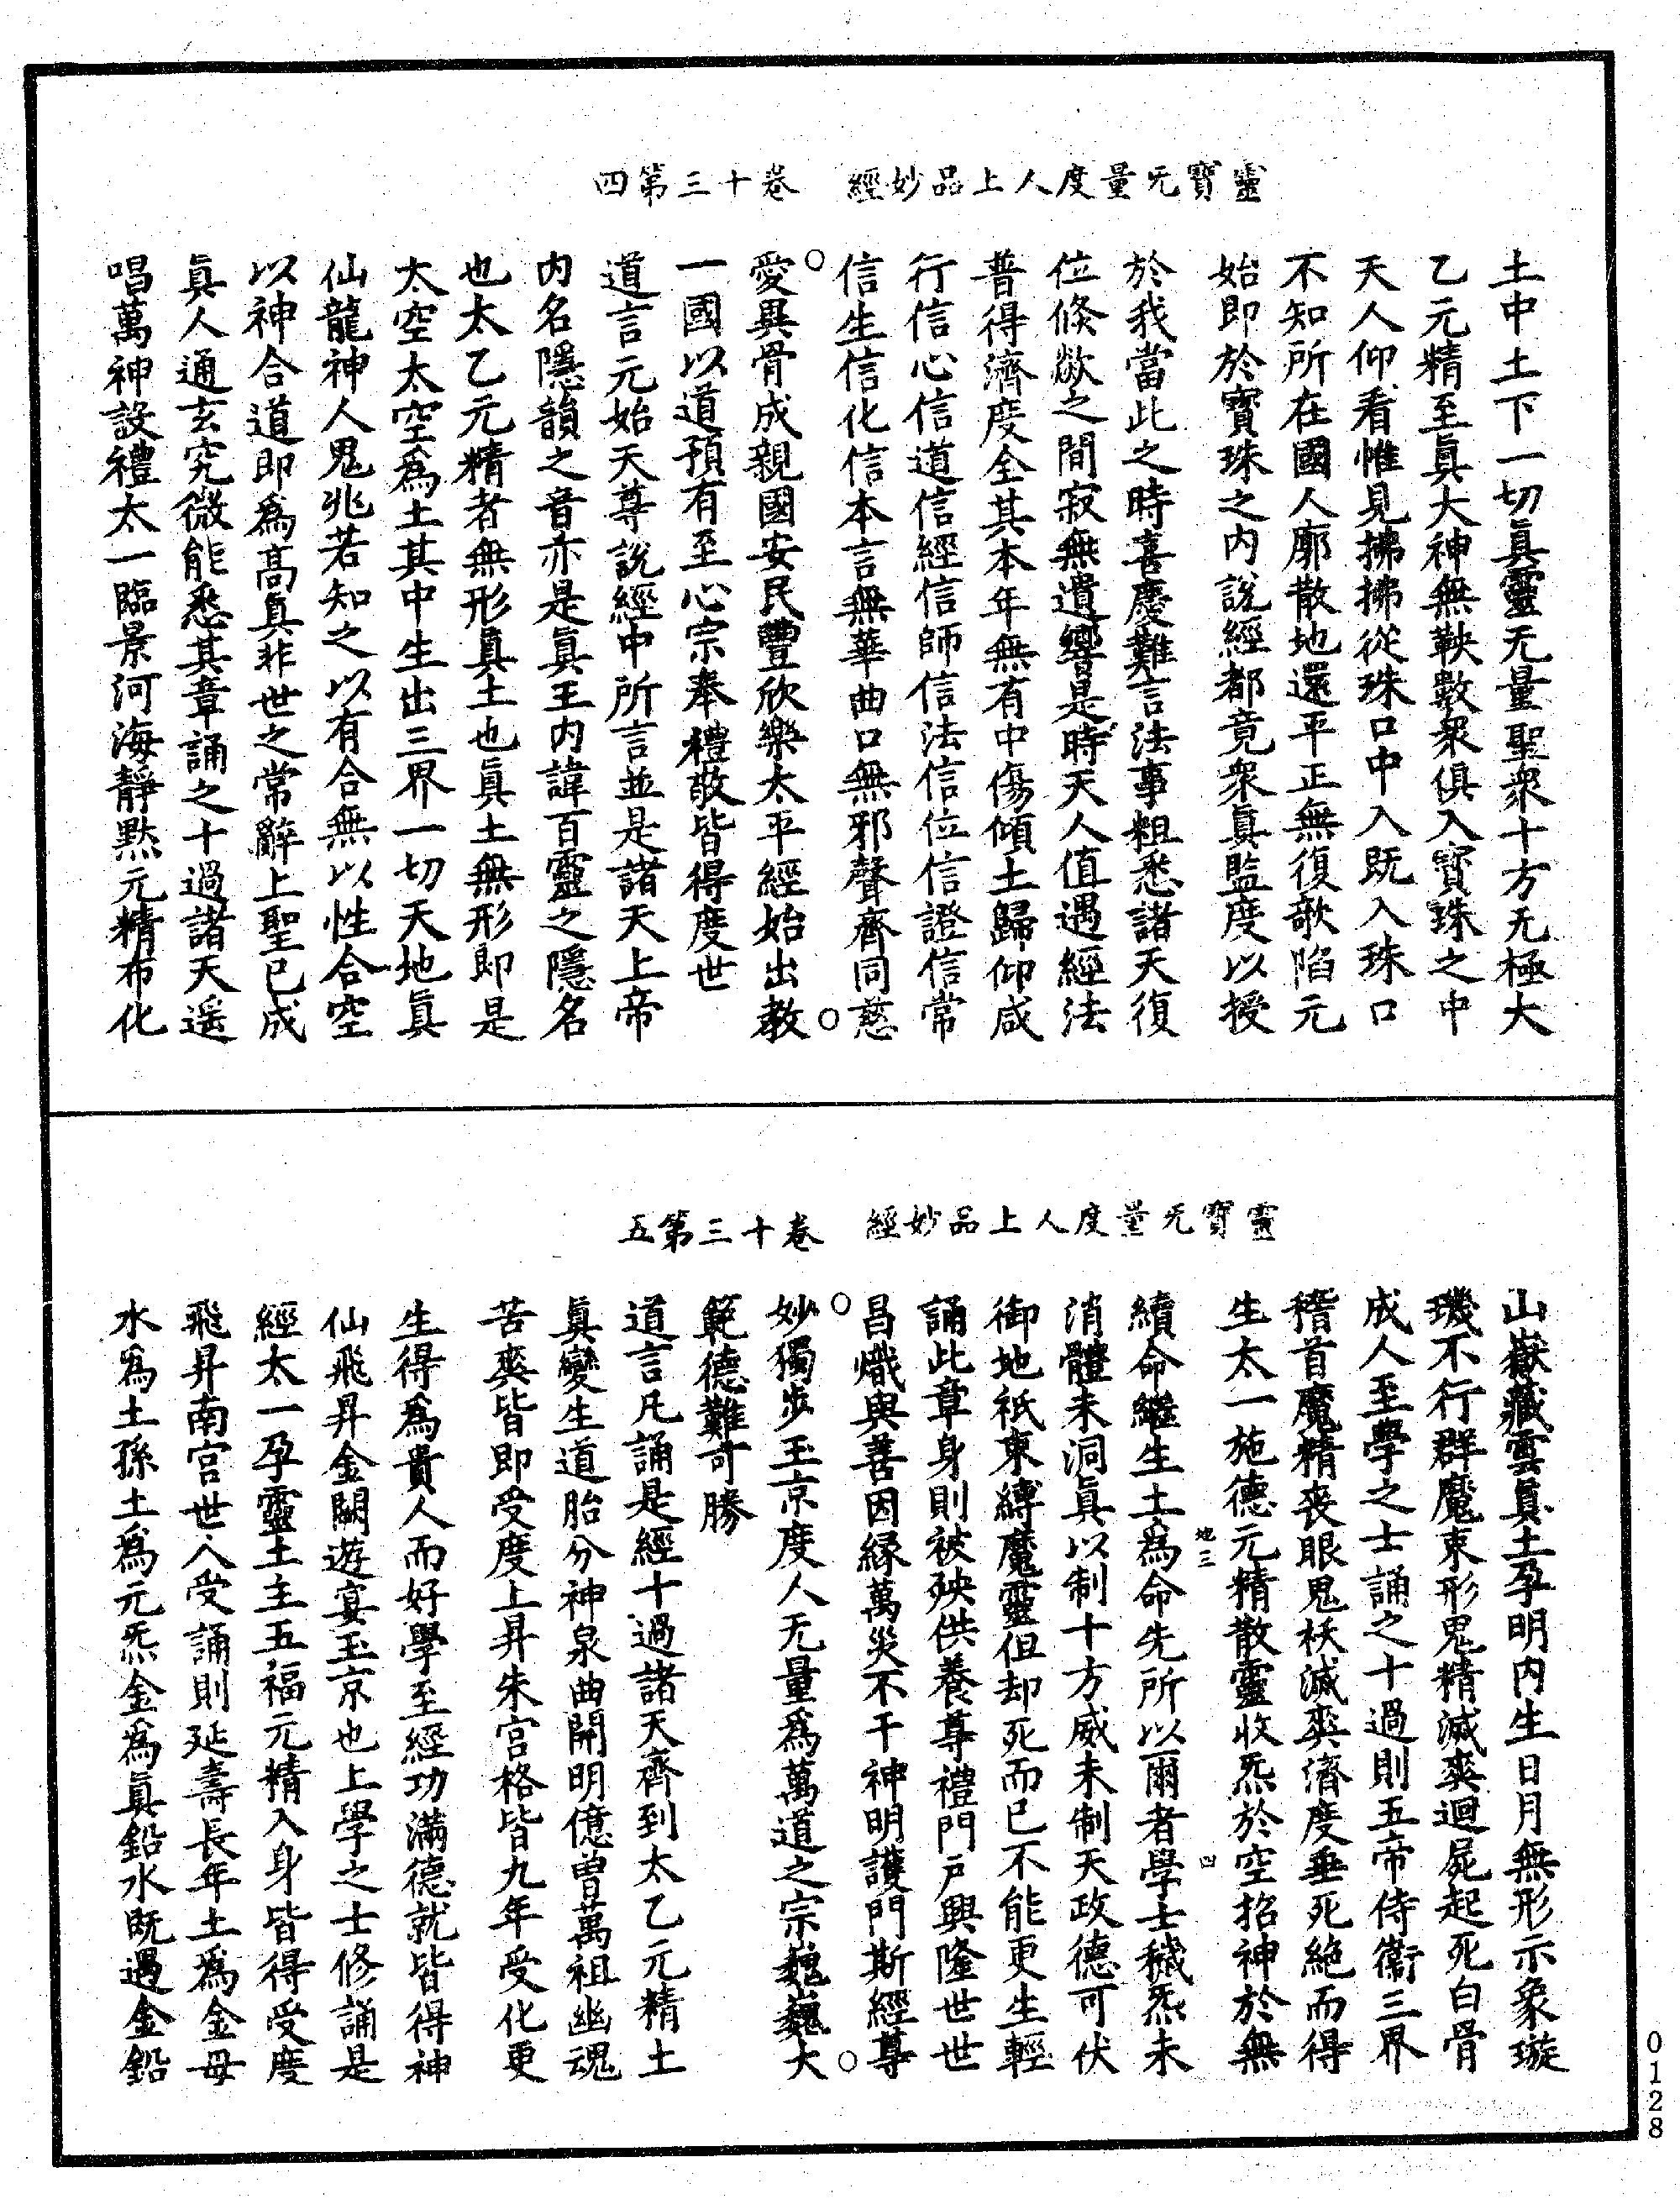 靈寶无量度人上品妙經　卷十三第四
土中土下一切眞靈无量聖衆十方无極大
乙元精至眞大神無鞅數衆俱入寶珠之中
天人仰看惟見拂拂從珠口中入既入珠口
不知所在國人廓散地還平正無復欹陷元
始即於寶珠之内說經都竟衆眞監度以授
於我當此之時喜慶難言法事粗悉諸天復
位倏歘之間寂無遺響是時天人值遇經法
普得濟度全其本年無有中傷傾土歸仰咸
行信心信道信經信師信法信位信證信常
信生信化信本言無華曲口無邪聲齊同慈
愛異骨成親國安民豐欣樂太平經始出教
一國以道預有至心宗奉禮敬皆得度世
道言元始天尊說經中所言並是諸天上帝
内名隱韻之音亦是眞王内諱百靈之隱名
也太乙元精者無形眞土也眞土無形即是
太空太空爲土其中生出三界一切天地眞
仙龍神人鬼兆若知之以有合無以性合空
以神合道即爲高眞非世之常辭上聖已成
眞人通玄究微能悉其章誦之十過諸天遥
唱萬神設禮太一臨景河海靜默元精布化
靈寶无量度人上品妙經　卷十三第五
山嶽藏雲眞土孕明内生日月無形示象璇
璣不行群魔束形鬼精滅爽迴屍起死白骨
成人至學之士誦之十過則五帝侍衛三界
稽首魔精喪眼鬼祅滅爽濟度垂死絶而得
生太一施德元精散靈收炁於空招神於無
地三　四
續命繼生土爲命先所以爾者學士穢炁未
消體未洞眞以制十方威未制天政德可伏
御地祇束縛魔靈但却死而已不能更生輕
誦此章身則被殃供養尊禮門戶興隆世世
昌熾與善因縁萬災不干神明護門斯經尊
妙獨步玉京度人无量爲萬道之宗巍巍大
範德難可勝
道言凡誦是經十過諸天齊到太乙元精土
眞變生道胎分神泉曲開明億曽萬祖幽魂
苦爽皆即受度上昇朱宮格皆九年受化更
生得爲貴人而好學至經功滿德就皆得神
仙飛昇金闕遊宴玉京也上學之士修誦是
經太一孕靈土主五福元精入身皆得受度
飛昇南宮世人受誦則延壽長年土爲金母
水爲土孫土爲元炁金爲眞鉛水既遇金鉛
0128